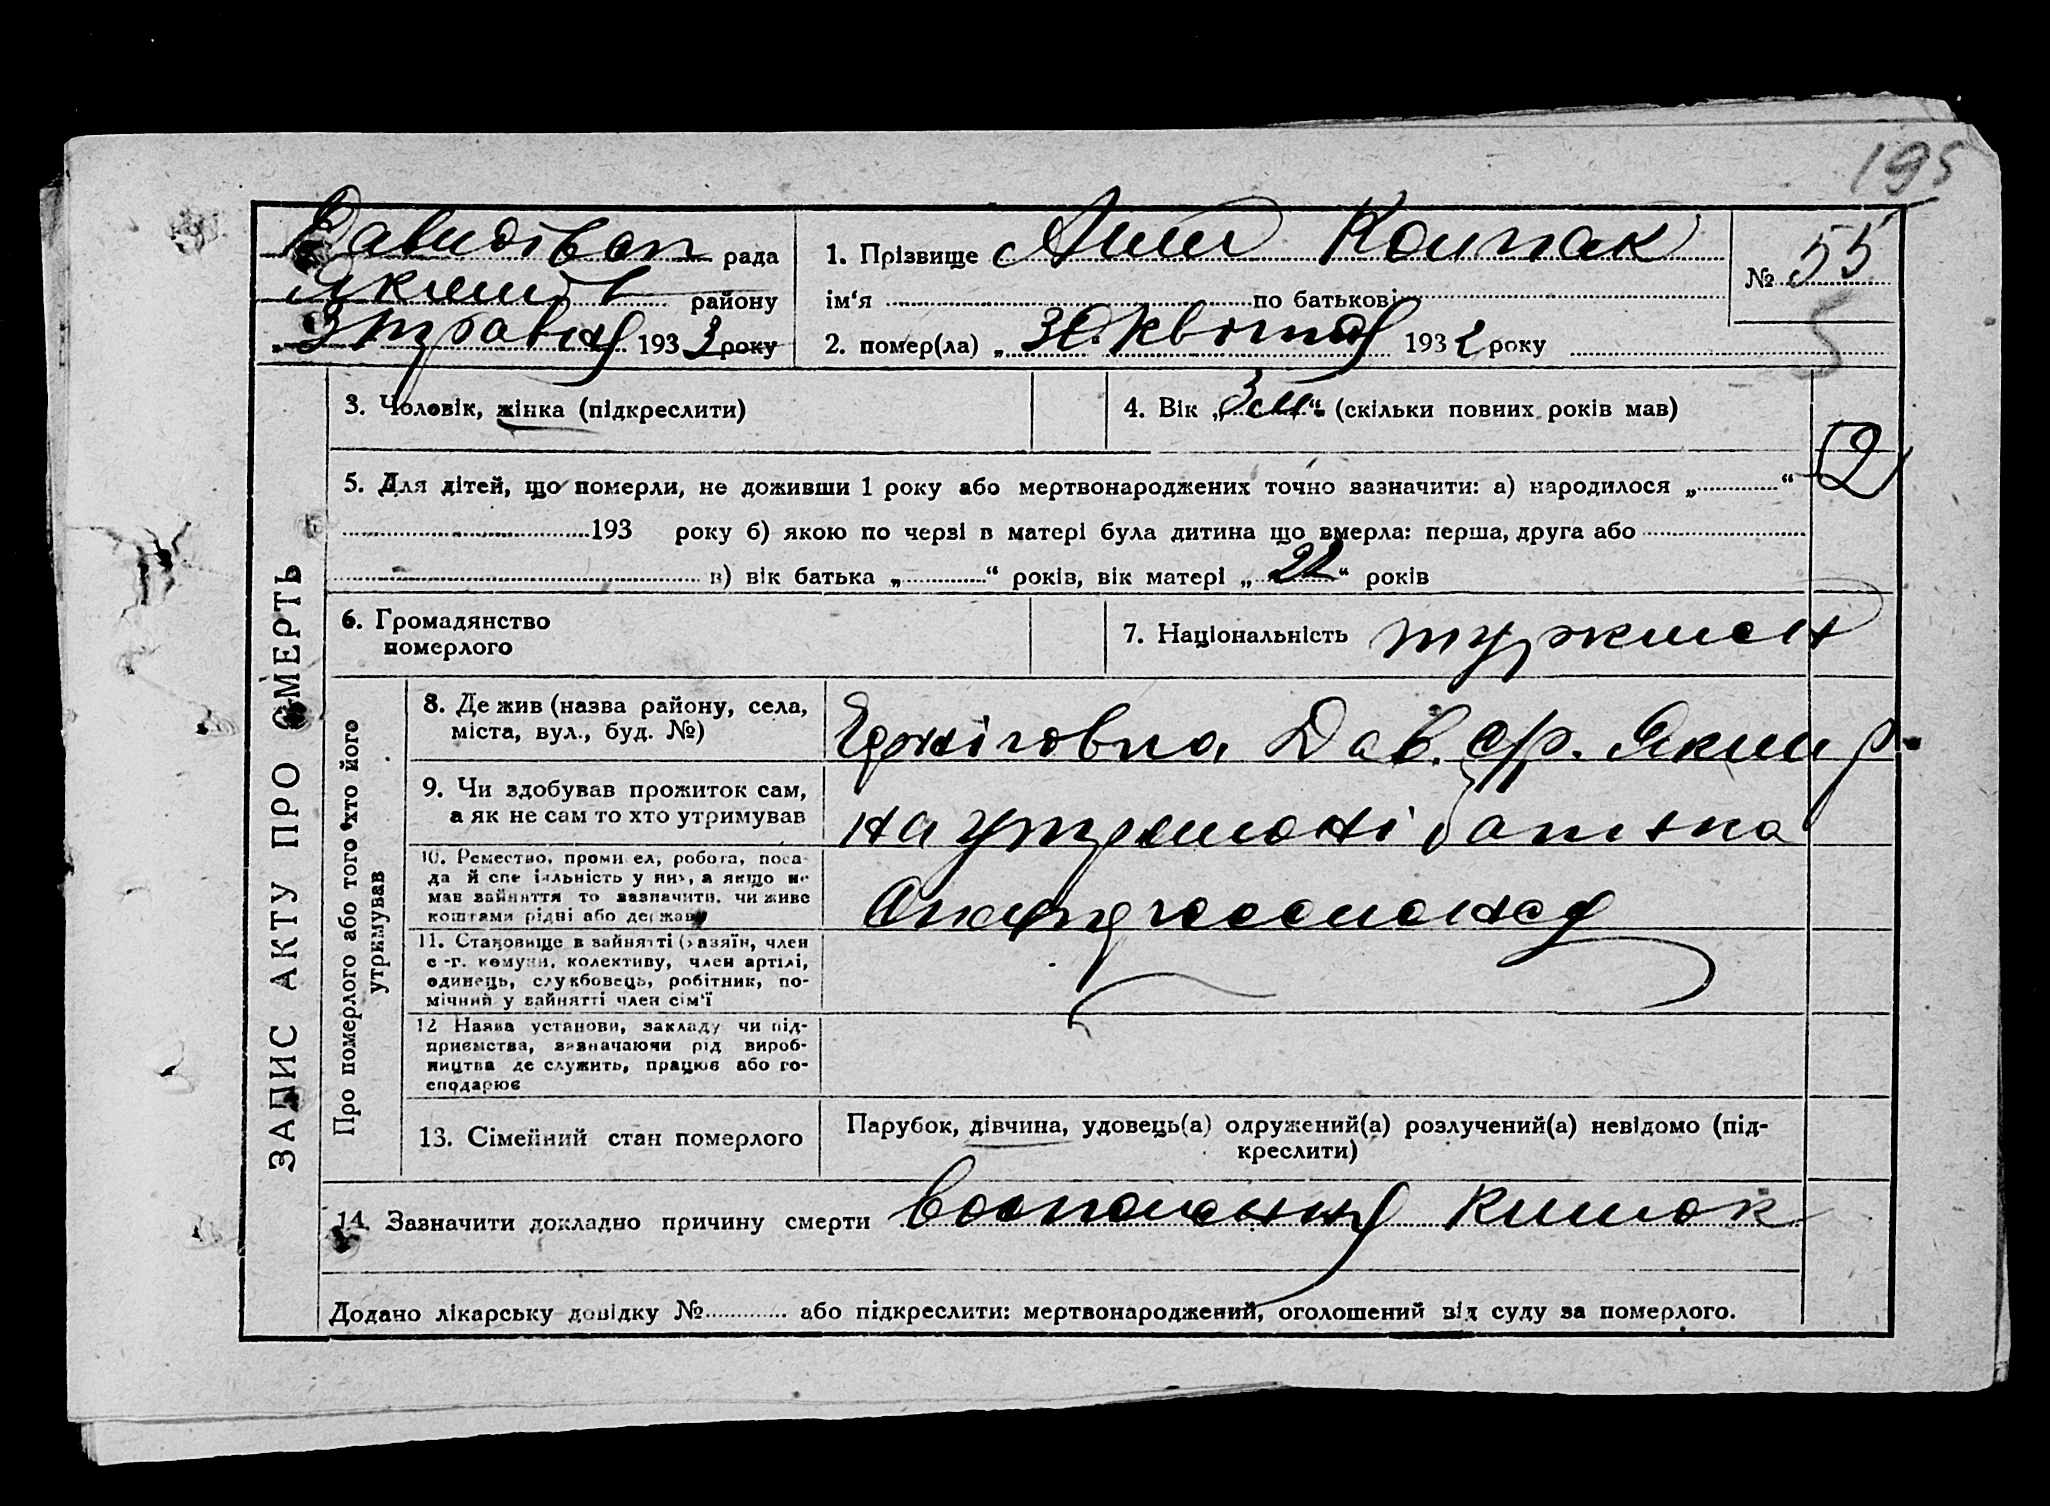 195
Давидівсп рада
Якимів району
„ 3 травня 1933 року
1. Прізвище Колпак
ім‘я по батькові
2. помер(ла) „ 30 квітня 193 року
№ 55
5
3. Чоловік, жінка (підкреслити)
4. Вік „ 3 м “ (скільки повних років мав)
2
5. Для дітей, що померли, не доживши 1 року або мертвонароджених точно зазначити: а) народилося „ “
193 року б) якою по черзі в матері була дитина що вмерла: перша, друга або
в) вік батька „ “ років, вік матері „ 22 “ років
6. Громадянство
померлого
7. Національність туркмен
ЗАПИС АКТУ ПРО СМЕРТЬ
Про померлого або того хто його
утримував
8. Де жив (назва району, села,
міста, вул., буд. №)
Дав. с/р. Яким р.
9. Чи здобував прожиток сам,
а як не сам то хто утримував
на утриманні батька
10. Ремество, промисел, робота, поса-
да й спеціяльність у них, а якщо не
мав зайняття то зазначити, чи живе
коштами рідні або держави
11. Становище в зайнятті (хазяїн, член
с.-г. комуни, колективу, член артілі,
одинець, службовець, робітник, по-
мічний у зайнятті член сім‘ї
12 Назва установи, закладу чи під-
приємства, зазначаючи рід вироб-
ництва де служить, працює або го-
сподарює
13. Сімейний стан померлого
Парубок, дівчина, удовець(а) одружений(а) розлучений(а) невідомо (під-
креслити)
14. Зазначити докладно причину смерти воспаления кишок
Додано лікарську довідку № або підкреслити: мертвонароджений, оголошений від суду за померлого.